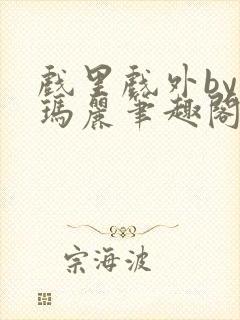 戲里戲外by
瑪麗筆趣閣
宗海波